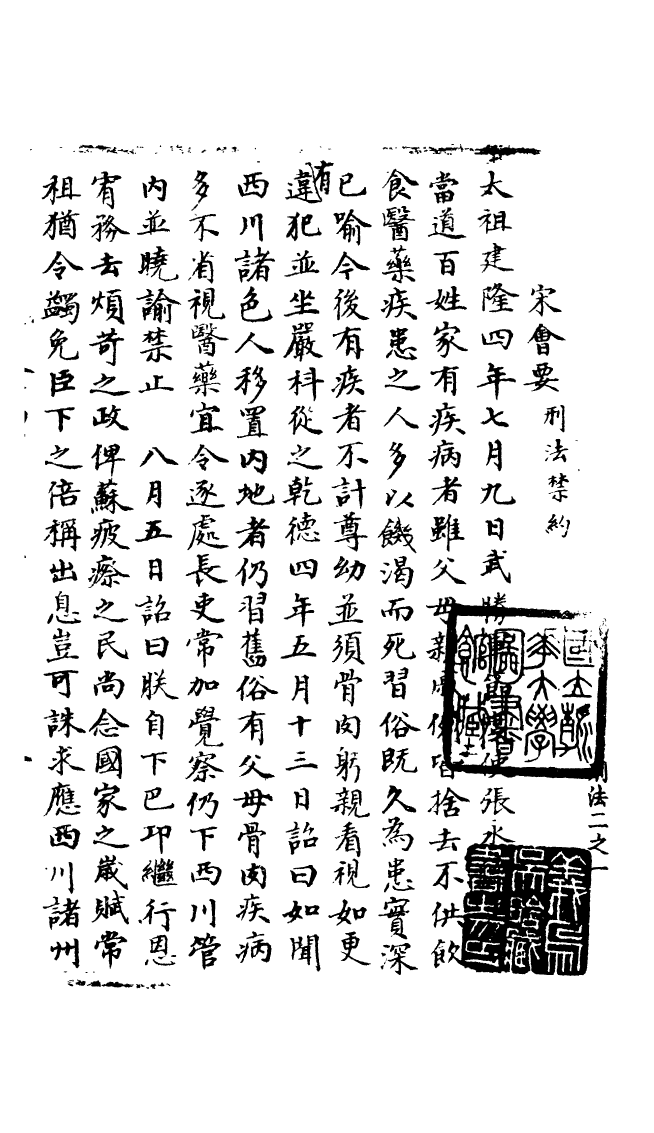 宋會要 刑法禁約
太祖建隆四年七月九日武勝軍節度使張永
當道百姓家有疾病者雖父母親戚例皆捨去不供飲
食醫藥疾患之人多以饑渴而死習俗既久為患實深
已喻今後有疾者不計尊幼並須骨肉躬親看視如更
有
違犯並坐嚴科從之乾德四年五月十三日詔曰如聞
西川諸色人移置內地者仍習舊俗有父母骨肉疾病
多不省視醫藥宜令逐處長吏常加覺察仍下西川管
內並曉諭禁止 八月五日詔曰朕自下巴卭繼行恩
宥務去煩苛之政俾蘇疲瘵之民尚念國家之嵗賦常
租猶令蠲免臣下之倍稱出息豈可誅求應西川諸州
刑法二之一
國立北平圖書館收藏